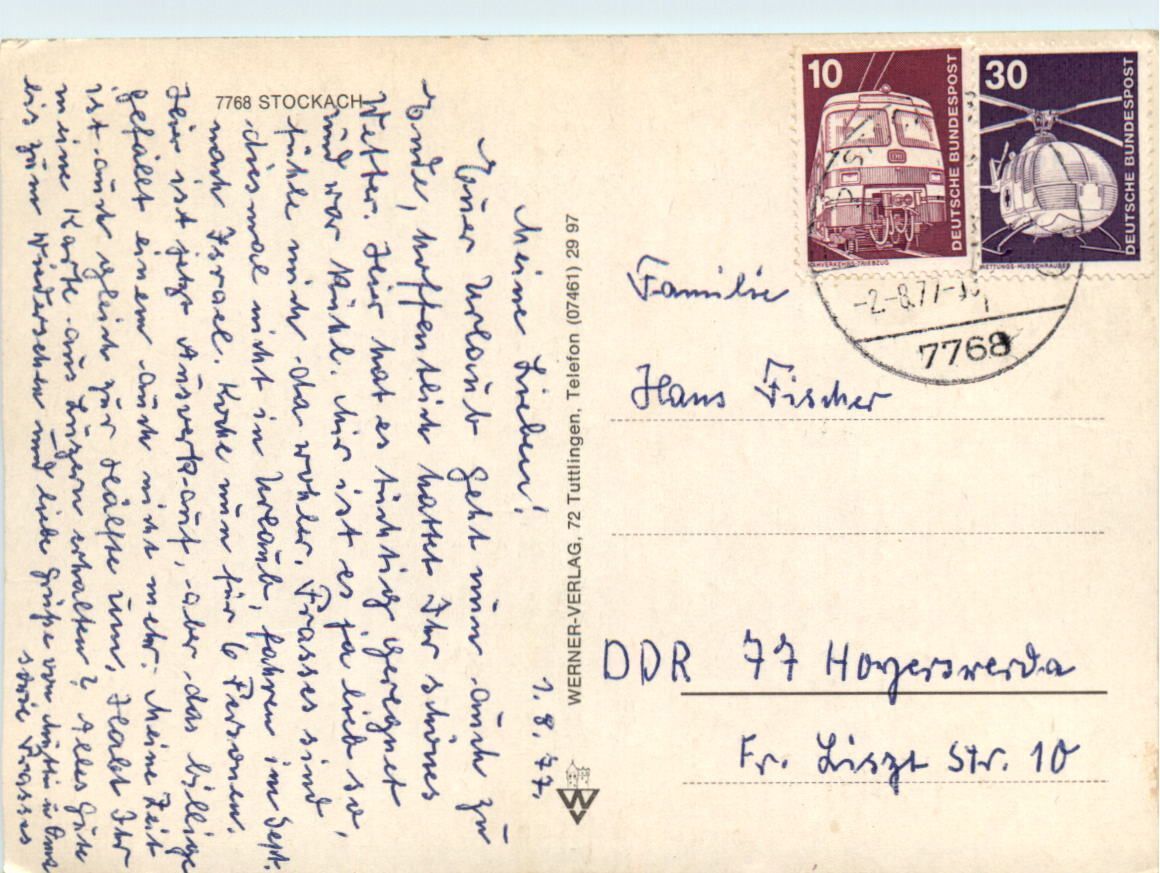 7768 STOCKACH
1.8.77.
Meine Lieben!
Euer Urlaub geht nun auch zu
Ende, hoffentlich hattet Ihr schönes
Wetter. Hier hat es tüchtig geregnet
und war kühl. Mir ist es ja lieb so,
fühle mich da wohler. Frasses sind
diesmal nicht in Urlaub, fahren im Sept.
nach Israel. Koche nun für 6 Personen.
Hier ist jetzt Ausverkauf, aber das billige
gefällt einem auch nicht mehr. Meine Zeit
ist auch gleich zur Hälfte um. Habt Ihr
meine Karte aus Luzern erhalten? Alles Gute
bis zum Wiedersehen und liebe Grüße von Mutti u. Oma
sowie Frasses
WERNER-VERLAG, 72 Tuttlingen, Telefon (07461) 29 97
W
10
DEUTSCHE BUNDESPOST
NAHVERKEHRS-TRIEBZUG
DB
30
DEUTSCHE BUNDESPOST
RETTUNGS-HUBSCHRAUBER
-2.-8.77-
7768
Familie
Hans Fischer
DDR 77 Hoyerswerda
Fr. Liszt Str. 10